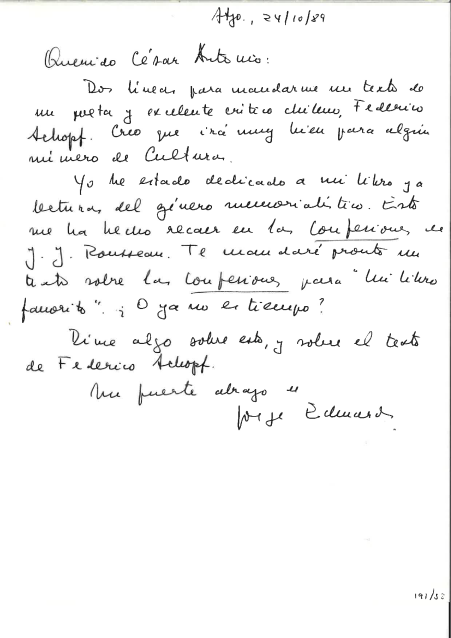 Stgo., 24/10/89
Querido César Antonio:
Dos líneas para mandarme un texto de
un poeta y excelente crítico chileno, Federico
Schopf. Creo que irá muy bien para algún
número de Culturas.
Yo he estado dedicado a mi libro y a
lecturas del género memorialístico. Esto
me ha hecho recaer en las Confesiones de
J. J. Rousseau. Te mandaré pronto un
texto sobre las Confesiones para "Mi libro
favorito". ¿O ya no es tiempo?
Dime algo sobre esto, y sobre el texto
de Federico Schopf.
Un fuerte abrazo de
Jorge Edwards